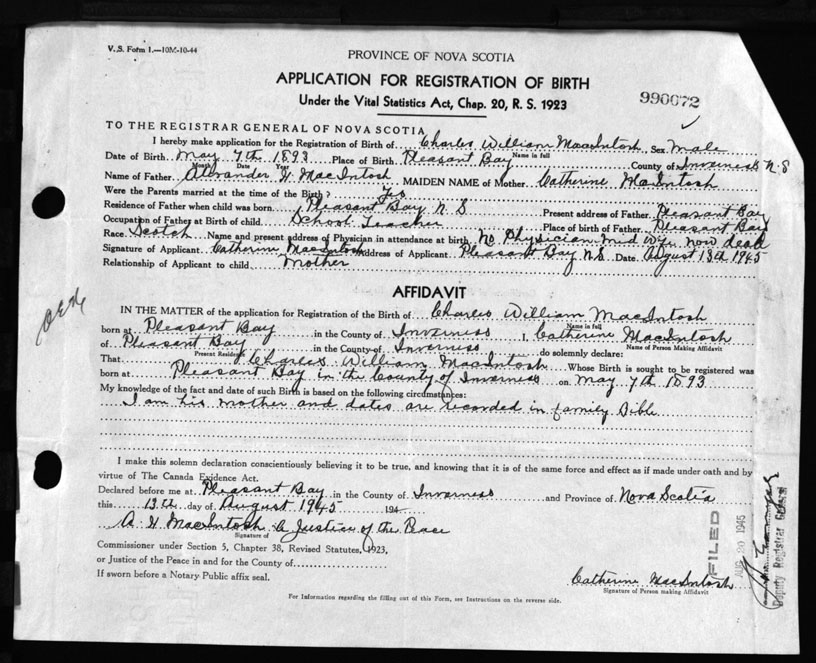 V. S. Form 1.—10M-10-44
PROVINCE OF NOVA SCOTIA
APPLICATION FOR REGISTRATION OF BIRTH
Under the Vital Statistics Act, Chap. 20, R. S. 1923
990072
TO THE REGISTRAR GENERAL OF NOVA SCOTIA
I hereby make application for the Registration of Birth of Charles William MacIntosh, Sex Male
Name in full
Date of Birth May 7th 1893 Place of Birth Pleasant Bay County of Inverness N.S
Month Date Year
Name of Father W MacIntosh MAIDEN NAME of Mother Catherine MacIntosh
Were the Parents married at the time of the Birth? Yes
Residence of Father when child was born Pleasant Bay N.S Present address of Father Pleasant Bay
Occupation of Father at Birth of child School Teacher Place of birth of Father Pleasant Bay
Race Scotch Name and present address of Physician in attendance at birth No Physician Mid Wife now dead
Signature of Applicant Catherine MacIntosh Address of Applicant Pleasant Bay N.S. Date August 13th 1945
Relationship of Applicant to child Mother
AFFIDAVIT
IN THE MATTER of the application for Registration of the Birth of Charles William MacIntosh
Name in full
born at Pleasant Bay in the County of Inverness I, Catherine MacIntosh
Name of Person Making Affidavit
of Pleasant Bay in the County of Inverness do solemnly declare:
Present Residence
That Charles William MacIntosh Whose Birth is sought to be registered was
born at Pleasant Bay in the County of Inverness on May 7th 1893
My knowledge of the fact and date of such Birth is based on the following circumstances:
I am his mother and dates are recorded in family Bible
I make this solemn declaration conscientiously believing it to be true, and knowing that it is of the same force and effect as if made under oath and by
virtue of The Canada Evidence Act.
Declared before me at Pleasant Bay in the County of Inverness and Province of Nova Scotia
this 13th day of August 1945 194
A W MacIntosh a Justice of the Peace
Signature of
Commissioner under Section 5, Chapter 38, Revised Statutes, 1923,
or Justice of the Peace in and for the County of
If sworn before a Notary Public affix seal.
Catherine MacIntosh
Signature of Person making Affidavit
For Information regarding the filling out of this Form, see Instructions on the reverse side.
FILED
AUG 20 1945
Deputy Registrar General